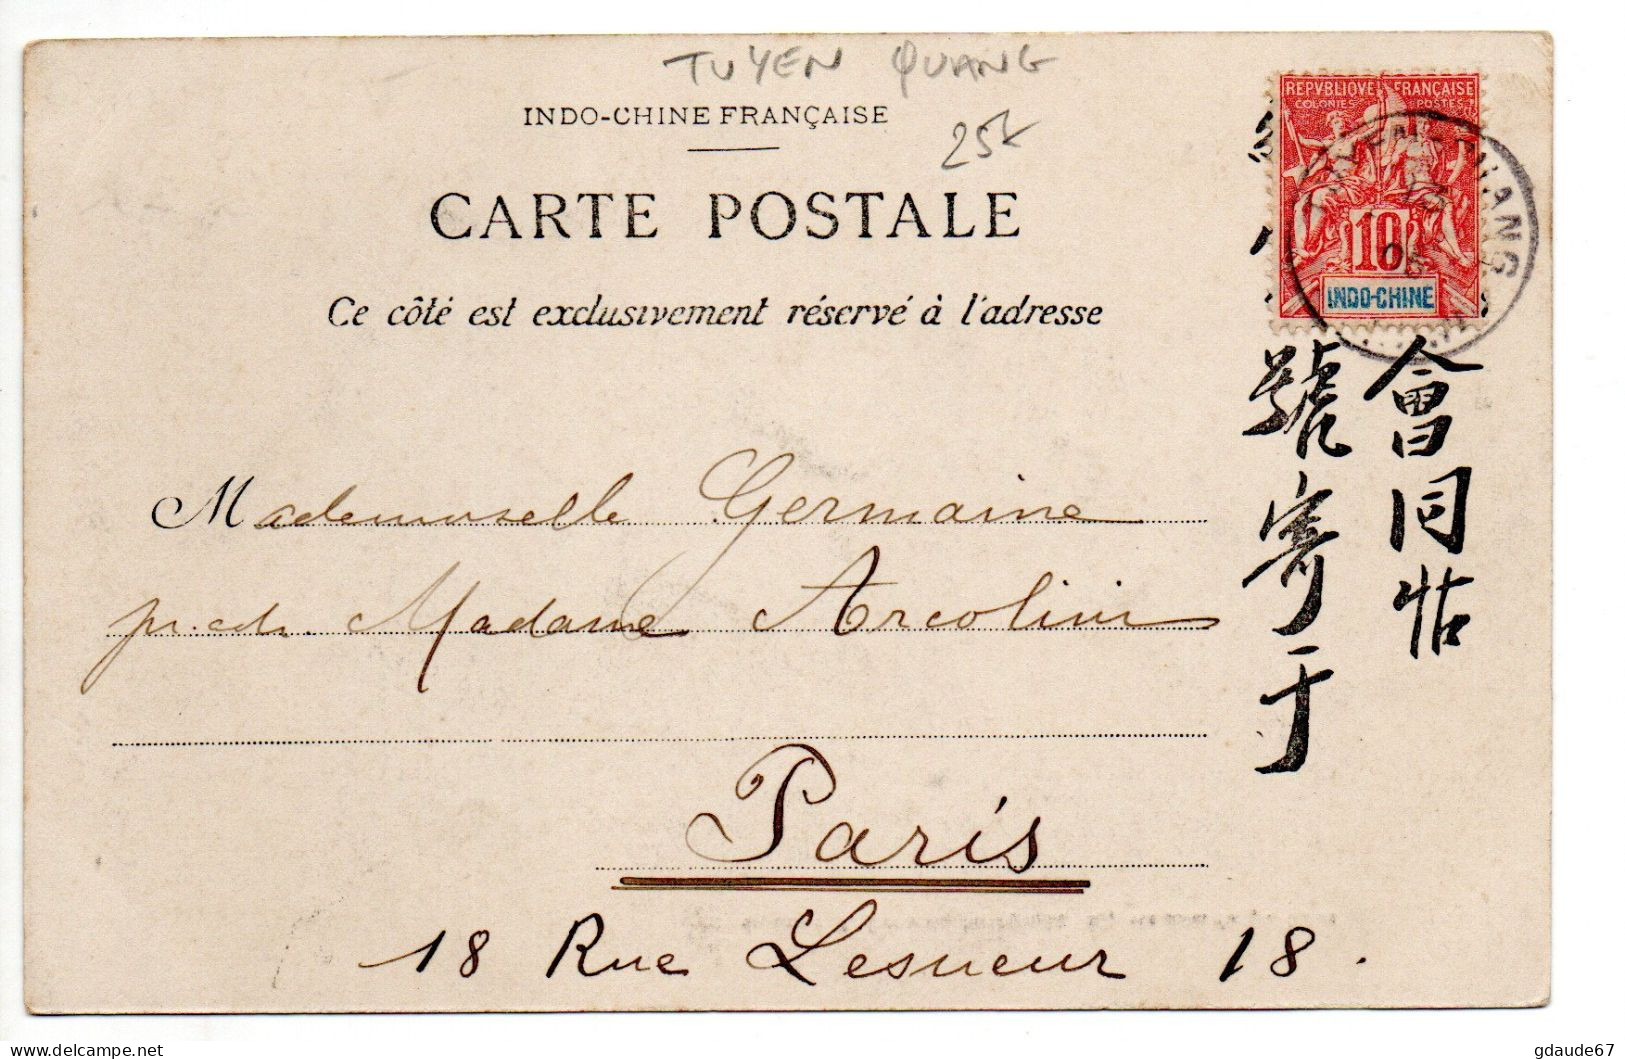 TUYEN QUANG
INDO-CHINE FRANÇAISE
25
CARTE POSTALE
Ce côté est exclusivement réservé à l'adresse
REPVBLIQVE FRANÇAISE
COLONIES POSTES
10
INDO-CHINE
會同帖
號寄于
Mademoiselle Germaine
Madame Arcolini
Paris
18 Rue Lesueur 18.
delcampe.net
gdaude67